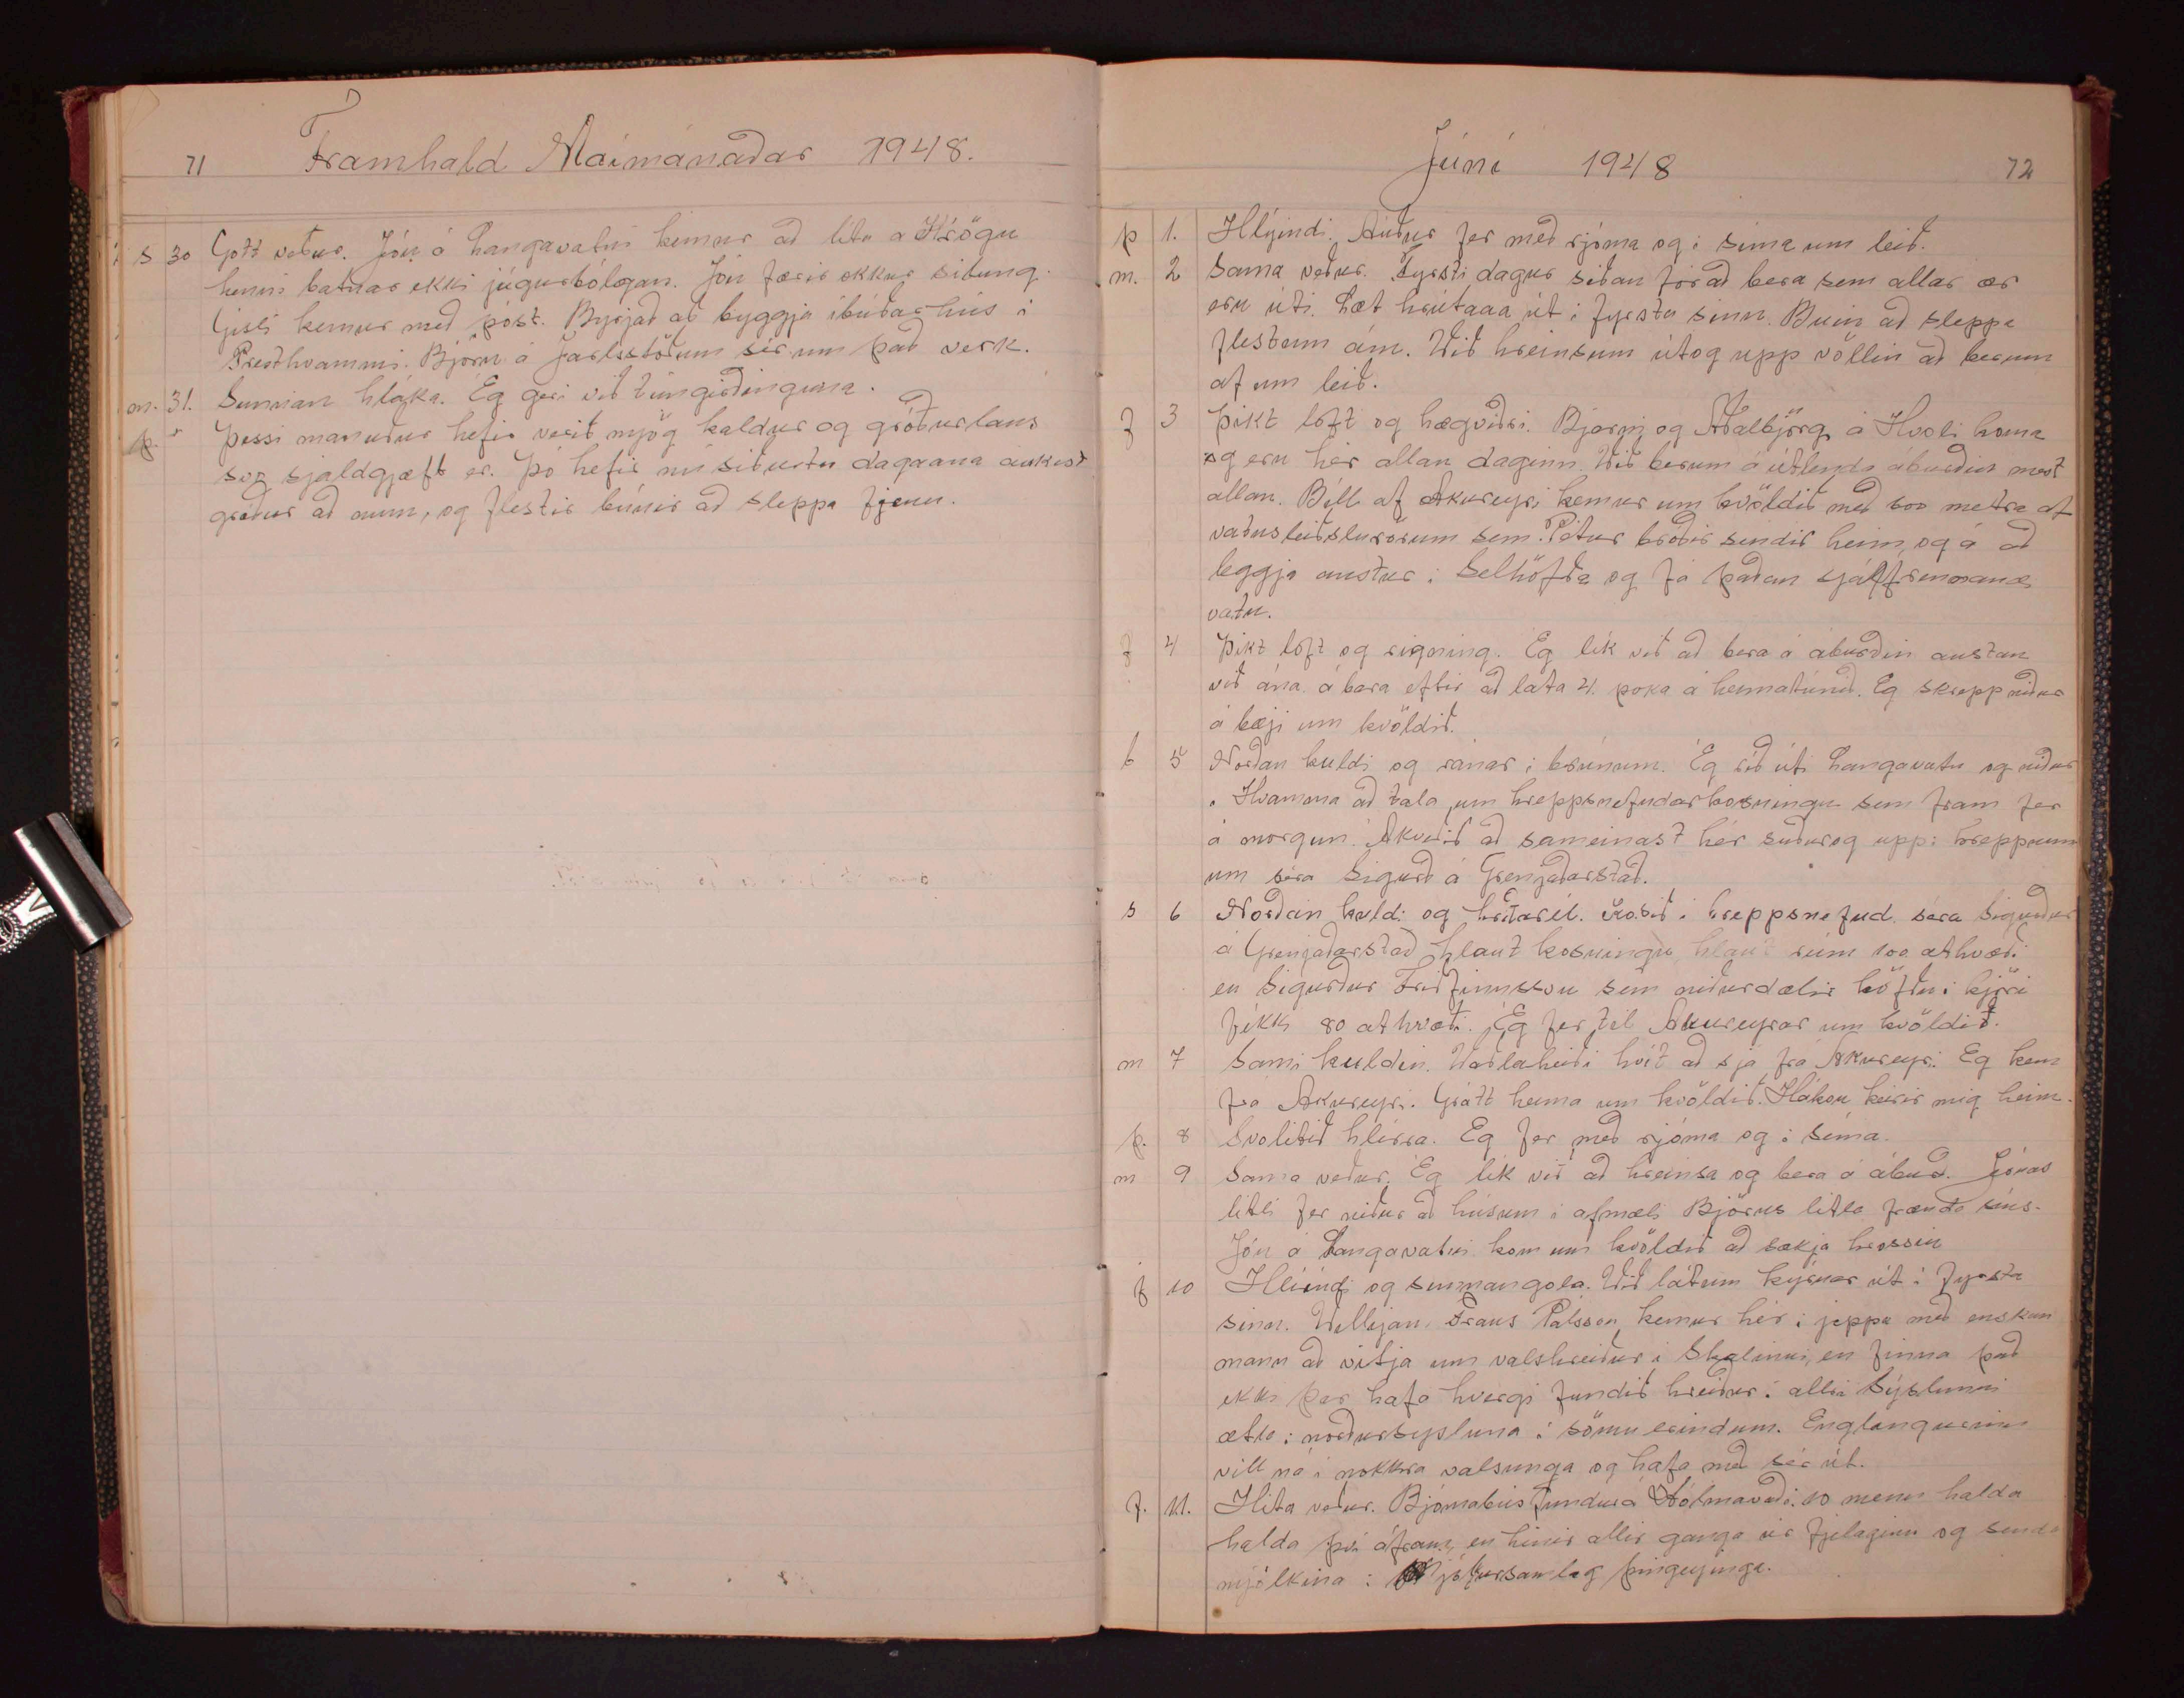 71 Framhald Maímánaðar 1948.
s 30 Gott veður. Jón á Langavatni kemur að líta á Krögu
henni batnar ekki júgurbólgan. Jón færir okkur silung.
Gísli kemur með póst. Byrjað að byggja íbúðarhús í
Presthvammi. Björn á Jarlsstöðum sér um það verk.
m. 31. Sunnan hláka. Eg geri við túngirðinguna.
Þessi manuður hefir verið mjög kaldur og gróðurlaus
svo sjaldgæft er. Þó hefir nú síðustu dagana aukist
gróður að mun, og flestir búnir að sleppa fjenu.
Júní 1948 72
þ 1. Hlýindi. Auður fer með rjóma og í síma um leið.
m. 2 Sama veður. Fyrsti dagur síðan fór að bera sem allar ær
eru úti. Læt hrútana út í fyrsta sinn. Buin að sleppa
flestum ám. Við hreinsum út og upp völlin að berum
af um leið.
f 3 Þikt loft og hægviðri. Bjarni og Aðalbjörg á Hvoli koma
og eru hér allan daginn. Við berum á útlenda áburðin mest
allan. Bíll af Akureyri kemur um kvöldið með 500 metra af
vatnsleiðslurörum sem Pétur bróðir sendir heim, og á að
leggja austur í Selhöfða og fá þaðan sjálfrennanda
vatn.
f 4 Þikt loft og rigning. Eg lík við að bera á áburðin austan
við ána á bara eftir að láta 4. poka á heimatúnið. Eg skrepp niður
á bæji um kvöldið.
l 5 Norðan kuldi og ránar í brúnum. Ég ríð úti Langavatn og niður
í Hvamma að tala um hreppsnefndarkosningu sem fram fer
á morgun. Akveðið að sameinast hér suður og upp í hreppnum
um séra Sigurð á Grenjaðarstað.
s 6 Norðan kuldi og hríðarél. Kosið í hreppsnefnd. séra Sigurður
á Grenjaðarstað hlaut kosningu, hlaut rúm 100 atkvæði
en Sigurður Friðfinnsson sem niðurdælir höfðu í kjöri
fékk 80 atkvæði. Ég fer til Akureyrar um kvöldið.
m 7 Sami kuldin. Vaðlaheiði hvít að sjá frá Akureyri. Eg kem
frá Akureyri. Grátt heima um kvöldið. Hákon keirir mig heim.
þ. 8 Svolitið hlírra. Eg fer með rjóma og í síma.
m 9 Sama veður. Eg lík við að hreinsa og bera á áburð. Jónas
litli fer niður að húsum í afmæli Björns litla frænda síns.
Jón á Langavatni kom um kvöldið að sækja hrossin
f 10 Hlíindi og sunnangola. Við látum kýrnar út í fyrsta
sinn. Villijam, Frans Pálsson kemur hér í jeppa með enskan
mann að vitja um valshreiður í Skálinni, en finna það
ekki þar hafa hvergi fundið hreiður í allri Sýslunni
ætla í norðursysluna í sömu erindum. Englangurinn
vill ná í nokkra valsunga og hafa með sér út.
f. 11. Hita veður. Rjómabús fundur á Hólmavaði. 10 menn halda
halda því áfram, en hinir allir ganga úr fjelaginu og senda
mjólkina í Mjólkursamlag Þingeyinga.